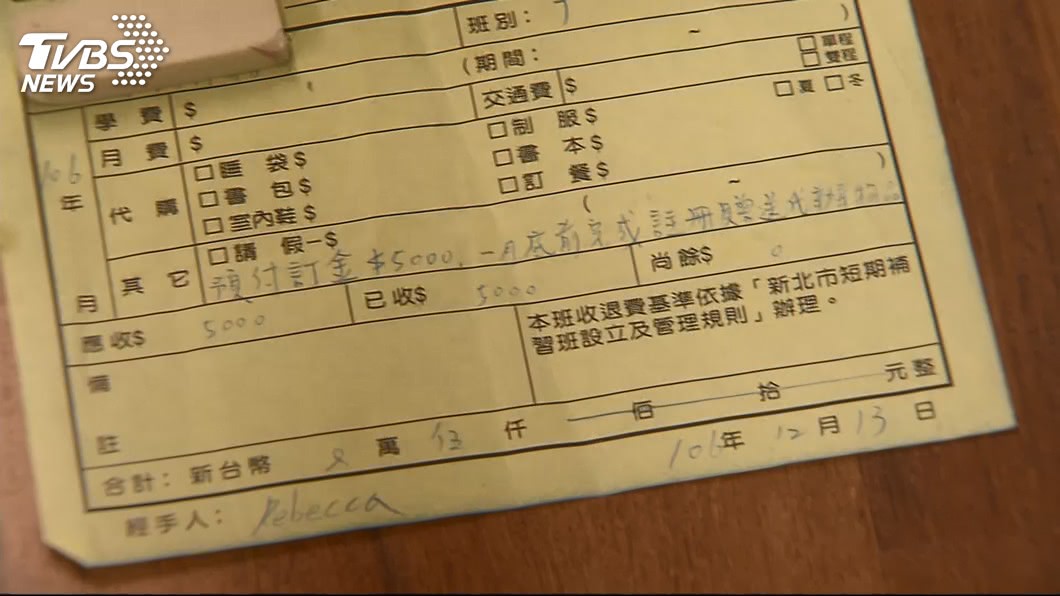 TVBS
NEWS
班別：
(期間： ~ )
□單程
□雙程
學費 $
交通費 $
□夏 □冬
月費 $
□制服 $
106年 月
代購
□睡袋 $
□書本 $
□書包 $
□訂餐 $
□室內鞋 $
( ~ )
其它
□請假－$
預付訂金$5000,一月底前完成註冊贈送代辦物品
應收$ 5000
已收$ 5000
尚餘$ 0
備註
本班收退費基準依據「新北市短期補
習班設立及管理規則」辦理。
合計：新台幣 萬 伍 仟 佰 拾 元整
經手人： Rebecca
106年 12月 13日